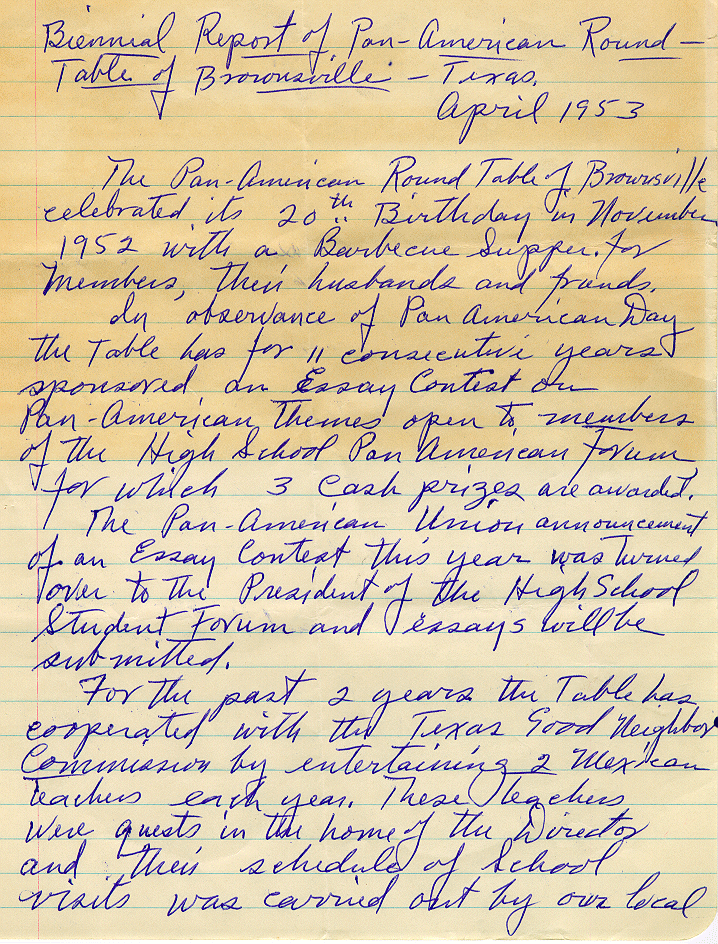 Biennial Report of Pan-American Round-
Table of Brownsville - Texas.
April 1953
The Pan-American Round Table of Brownsville
celebrated its 20th Birthday in November
1952 with a Barbecue Supper for
Members, their husbands and friends.
In observance of Pan American Day
the Table has for 11 consecutive years
sponsored an Essay Contest on
Pan-American Themes open to members
of the High School Pan American Forum
for which 3 Cash prizes are awarded.
The Pan-American Union announcement
of an Essay Contest this year was turned
over to the President of the High School
Student Forum and essays will be
submitted.
For the past 2 years the Table has
cooperated with the Texas Good Neighbor
Commission by entertaining 2 Mexican
teachers each year. These teachers
were guests in the home of the Director
and their schedule of School
visits was carried out by our local